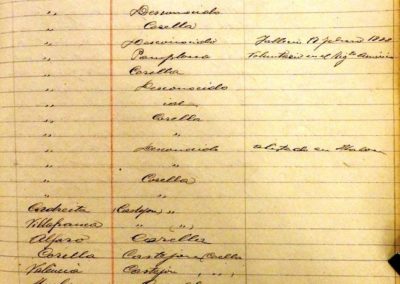 " Desconocido
" Corella
" Desconocido Falleció 17 febrero
" Pamplona Voluntario en el Regto
" Corella
" Desconocido
" id
" Corella
" "
" Desconocido alistado en
" "
" Corella
" "
Cadreita Castejon "
Villafranca " "
Alfaro Corella
Corella Castejon, Corella
Valencia Castejon " "